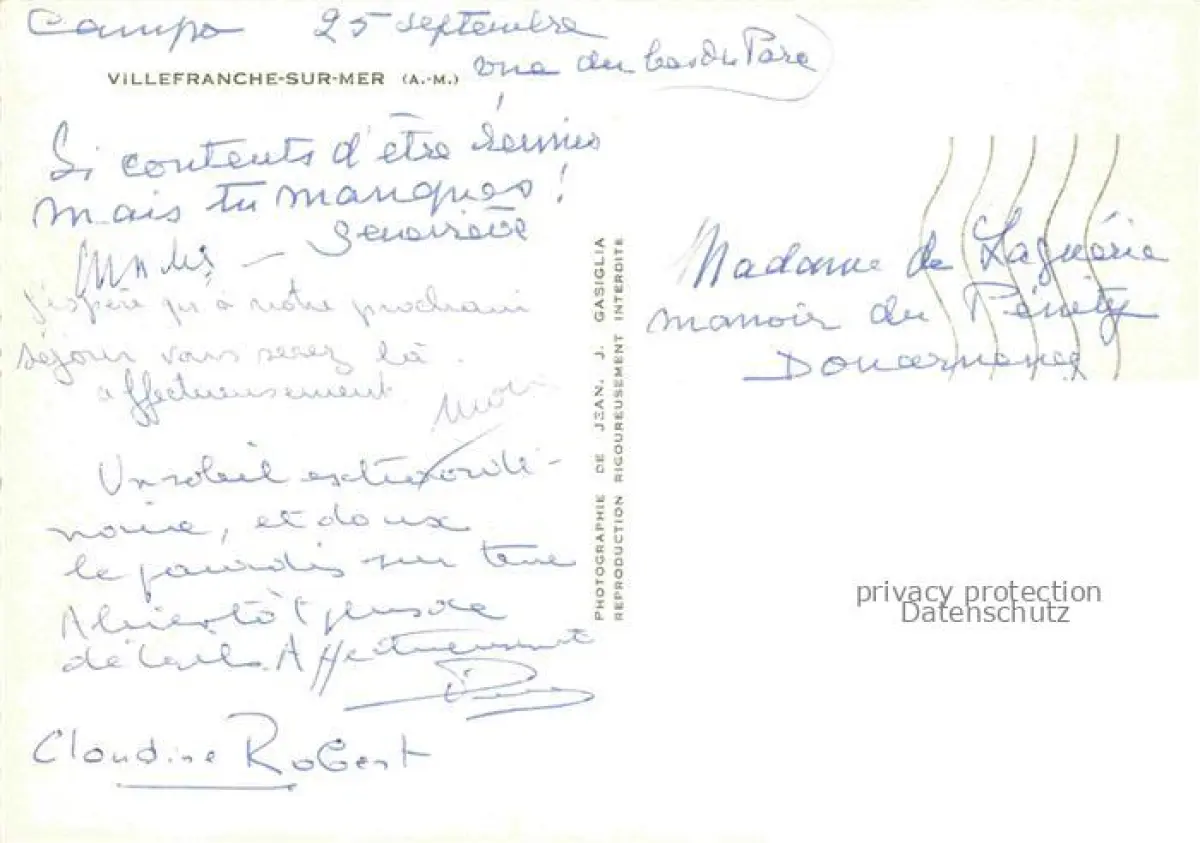 Campo 25 septembre
vue du bas du Parc
VILLEFRANCHE-SUR-MER (A.-M.)
Si contents d'être réunis
mais tu manques !
Geneviève
j'espère qu'à notre prochain
séjour vous serez là.
affectueusement
Un soleil extraordi-
naire, et doux
le paradis sur terre
A bientôt plus de
détails. Affectueusement
Claudine Robert
PHOTOGRAPHIE DE JEAN. J. GASIGLIA
REPRODUCTION RIGOUREUSEMENT INTERDITE
Madame de Laguérie
manoir du Pénity
Douarnenez
privacy protection
Datenschutz